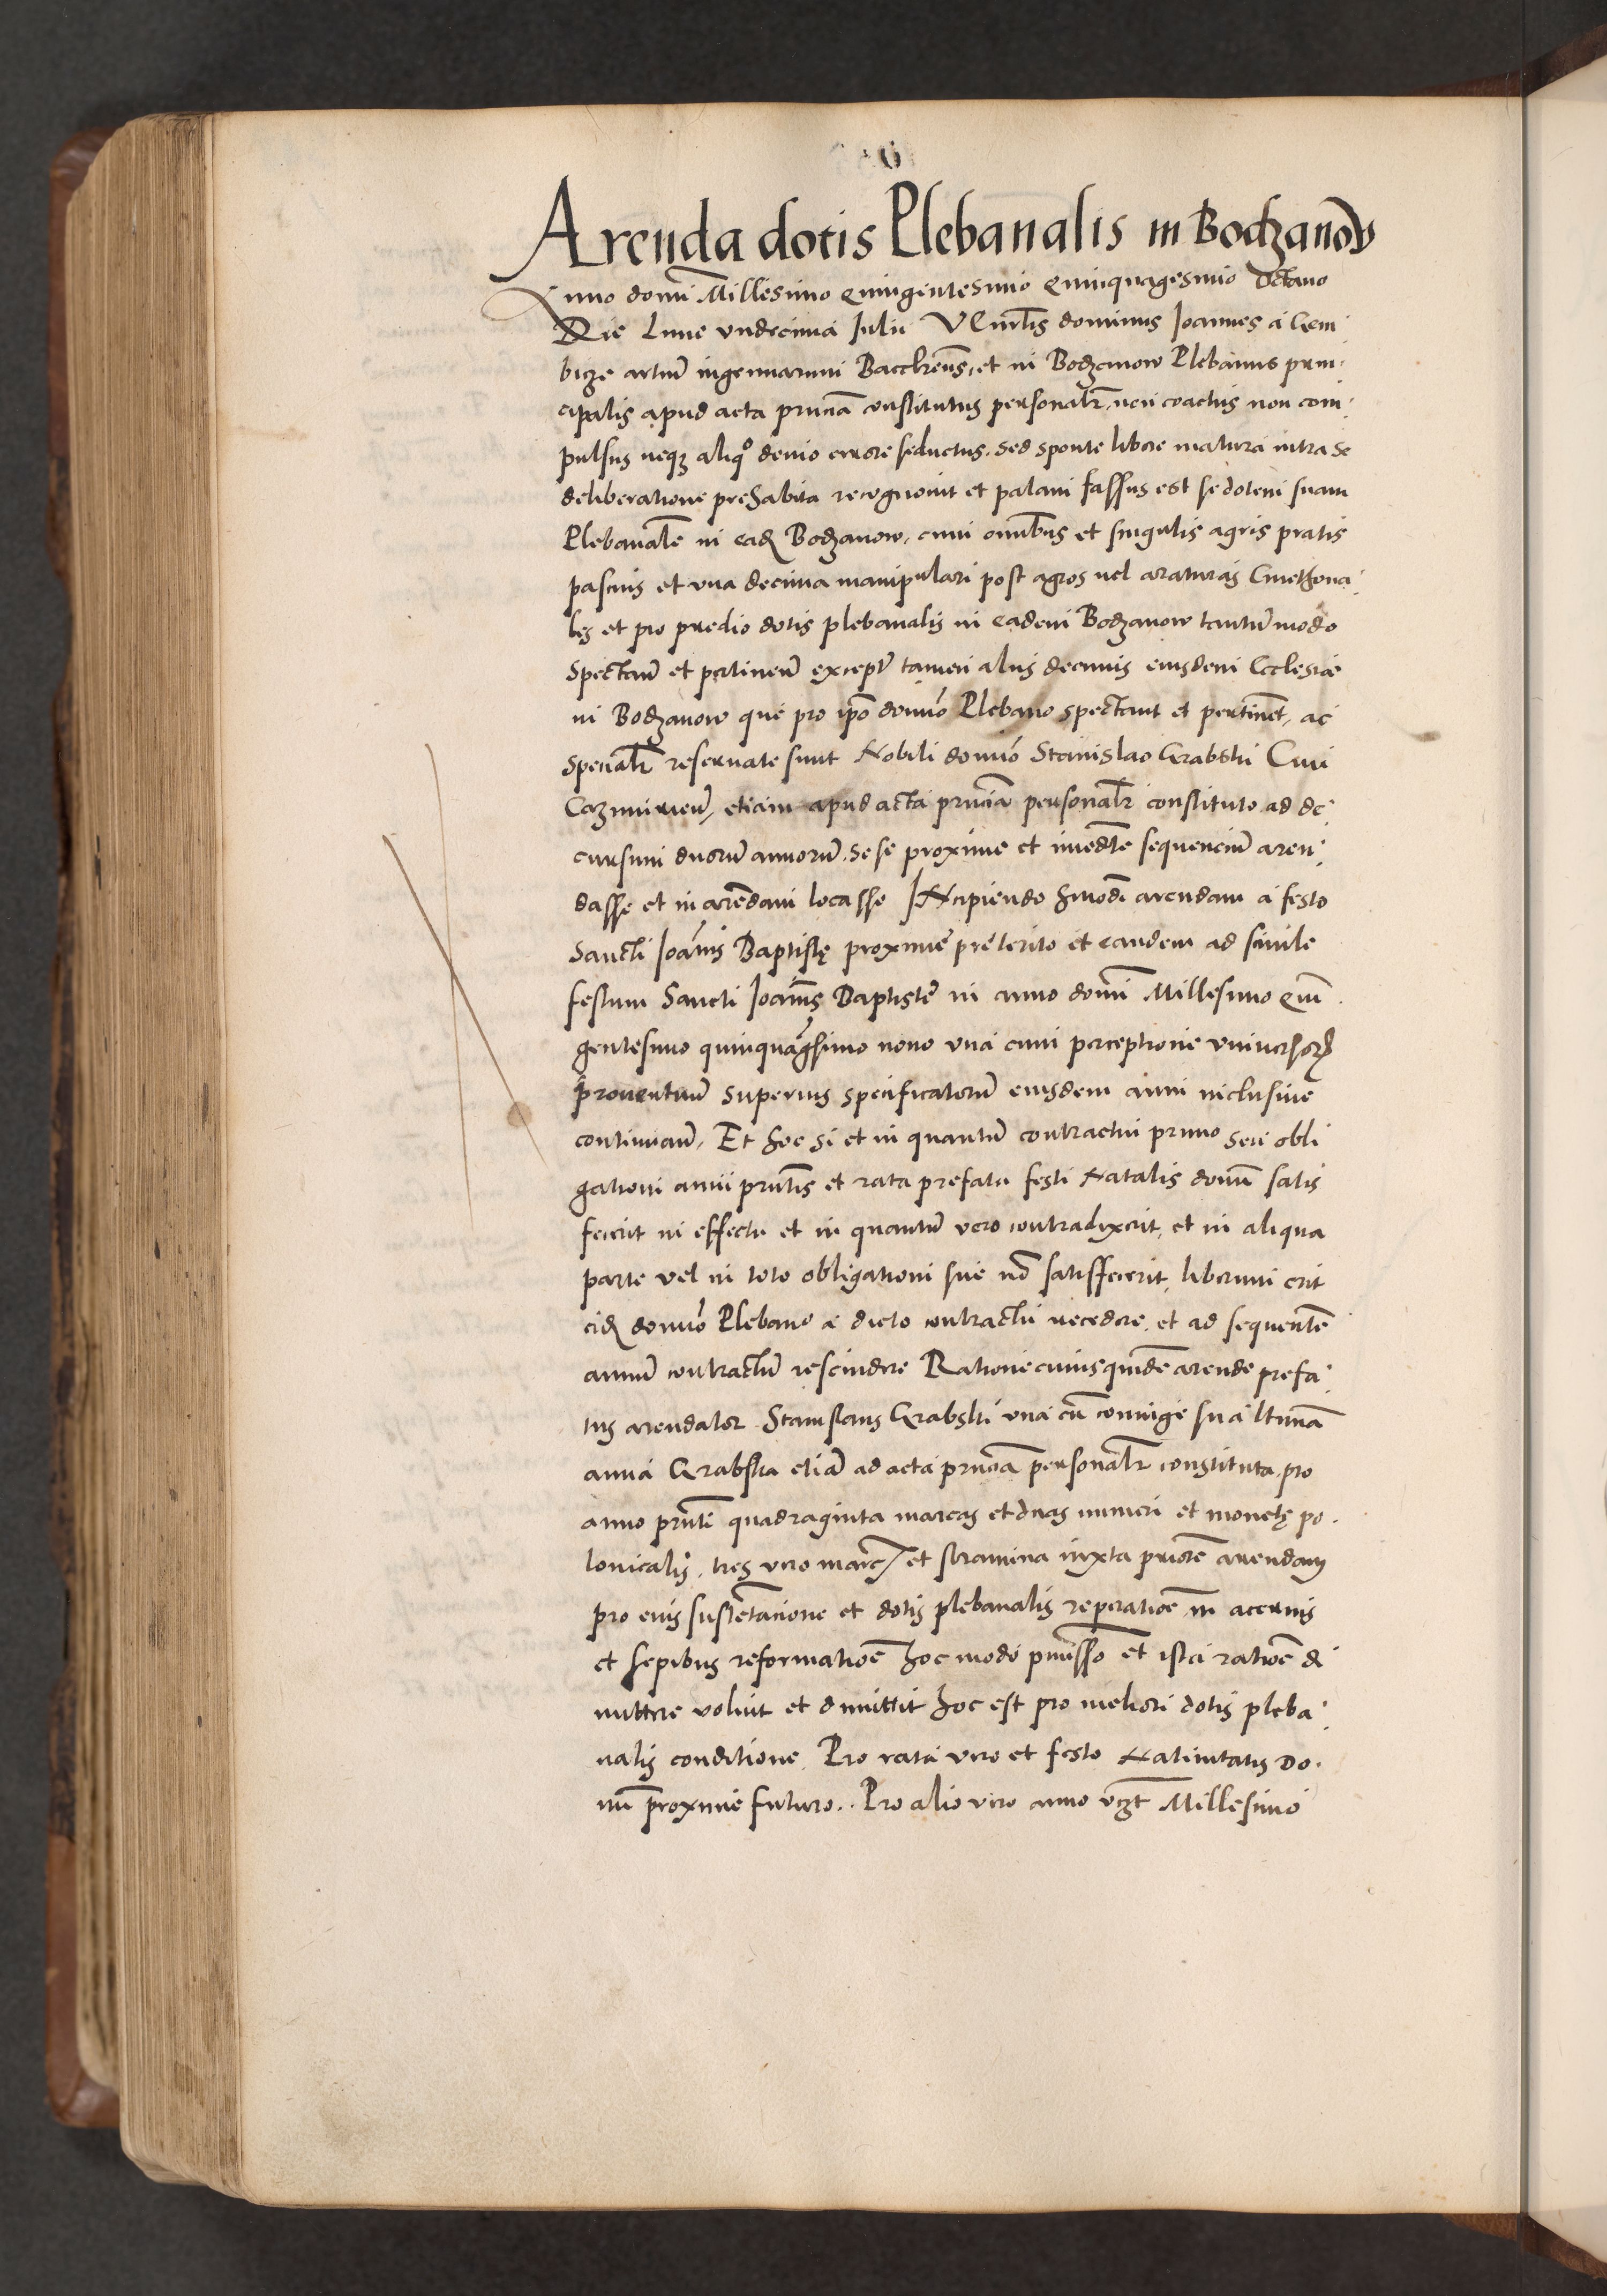 Arenda dotis Plebanalis in Bodzanow
Anno domi Millesimo Quingentesimo Quinquagesimo Octavo
Die Lune undecima Julii Venerlis dominus Joannes a Gem
bicze artium ingenuarum Bacchens, et in Bodzanow Plebanus prin
cipalis apud acta prncia constitutus personalr, non coactus non com
pulsus neqz aliquo devio errore seductus, sed sponte libere matura intra se
deliberatione prehabita recognovit et palam fassus est se dotem suam
Plebanale in eadem Bodzanow, cum omnibus et singulis agris pratis
pascuis et una decima manipulari post agros vel araturas Cmethona
les et pro predio dotis plebanalis in eadem Bodzanow tantum modo
Spectan et pertinen except tamen aliis decimis eiusdem Ecclesiae
in Bodzanow que pro ipso domino Plebano spectant et pertinet, ac
Specialr reservate sunt Nobili domino Stanislao Grabski Civi
Cazmirien, etiam apud acta prncia personalr constituto ad de
cursum duorum annorum, se se proxime et imediate sequencium aren
dasse et in arendam locasse Incipiendo hmodi arendam a festo
Sancti Joannis Baptistę proxime preterito et eandem ad simile
festum Sancti Joannis Baptiste in anno domi Millesimo Quin
gentesimo quinquagesimo nono una cum perceptione universorum
proventuum superius specificatorum eiusdem anni inclusive
continuan, Et hoc si et in quantum contractui primo seu obli
gationi anni prntis et rata prefata festi Natalis domini satis
fecerit in effectu et in quantum vero contradixerit, et in aliqua
parte vel in toto obligationi sue non satisffecerit, liberum erit
eidem domino Plebano a dicto contractu recedere, et ad sequentem
annum contractum rescindere Ratione cuiusquidem arende prefa
tus arendator Stanislaus Grabski una cum coniuge sua ltima
anna Grabska etiam ad acta prncia personalr constituta, pro
anno prnti quadraginta marcas et duas numeri et monetę po
lonicalis, tres vero marc et stramina iuxta priorem arendam
pro eius sustentacione et dotis plebanalis reperatione in acervis
et sepibus reformatione hoc modo premisso et ista ratione di
mittere voluit et dimittit hoc est pro meliori dotis pleba
nalis conditione. Pro rata vero et festo Nativitatis Do
mi proxime futuro.. Pro alio vero anno vzt Millesimo